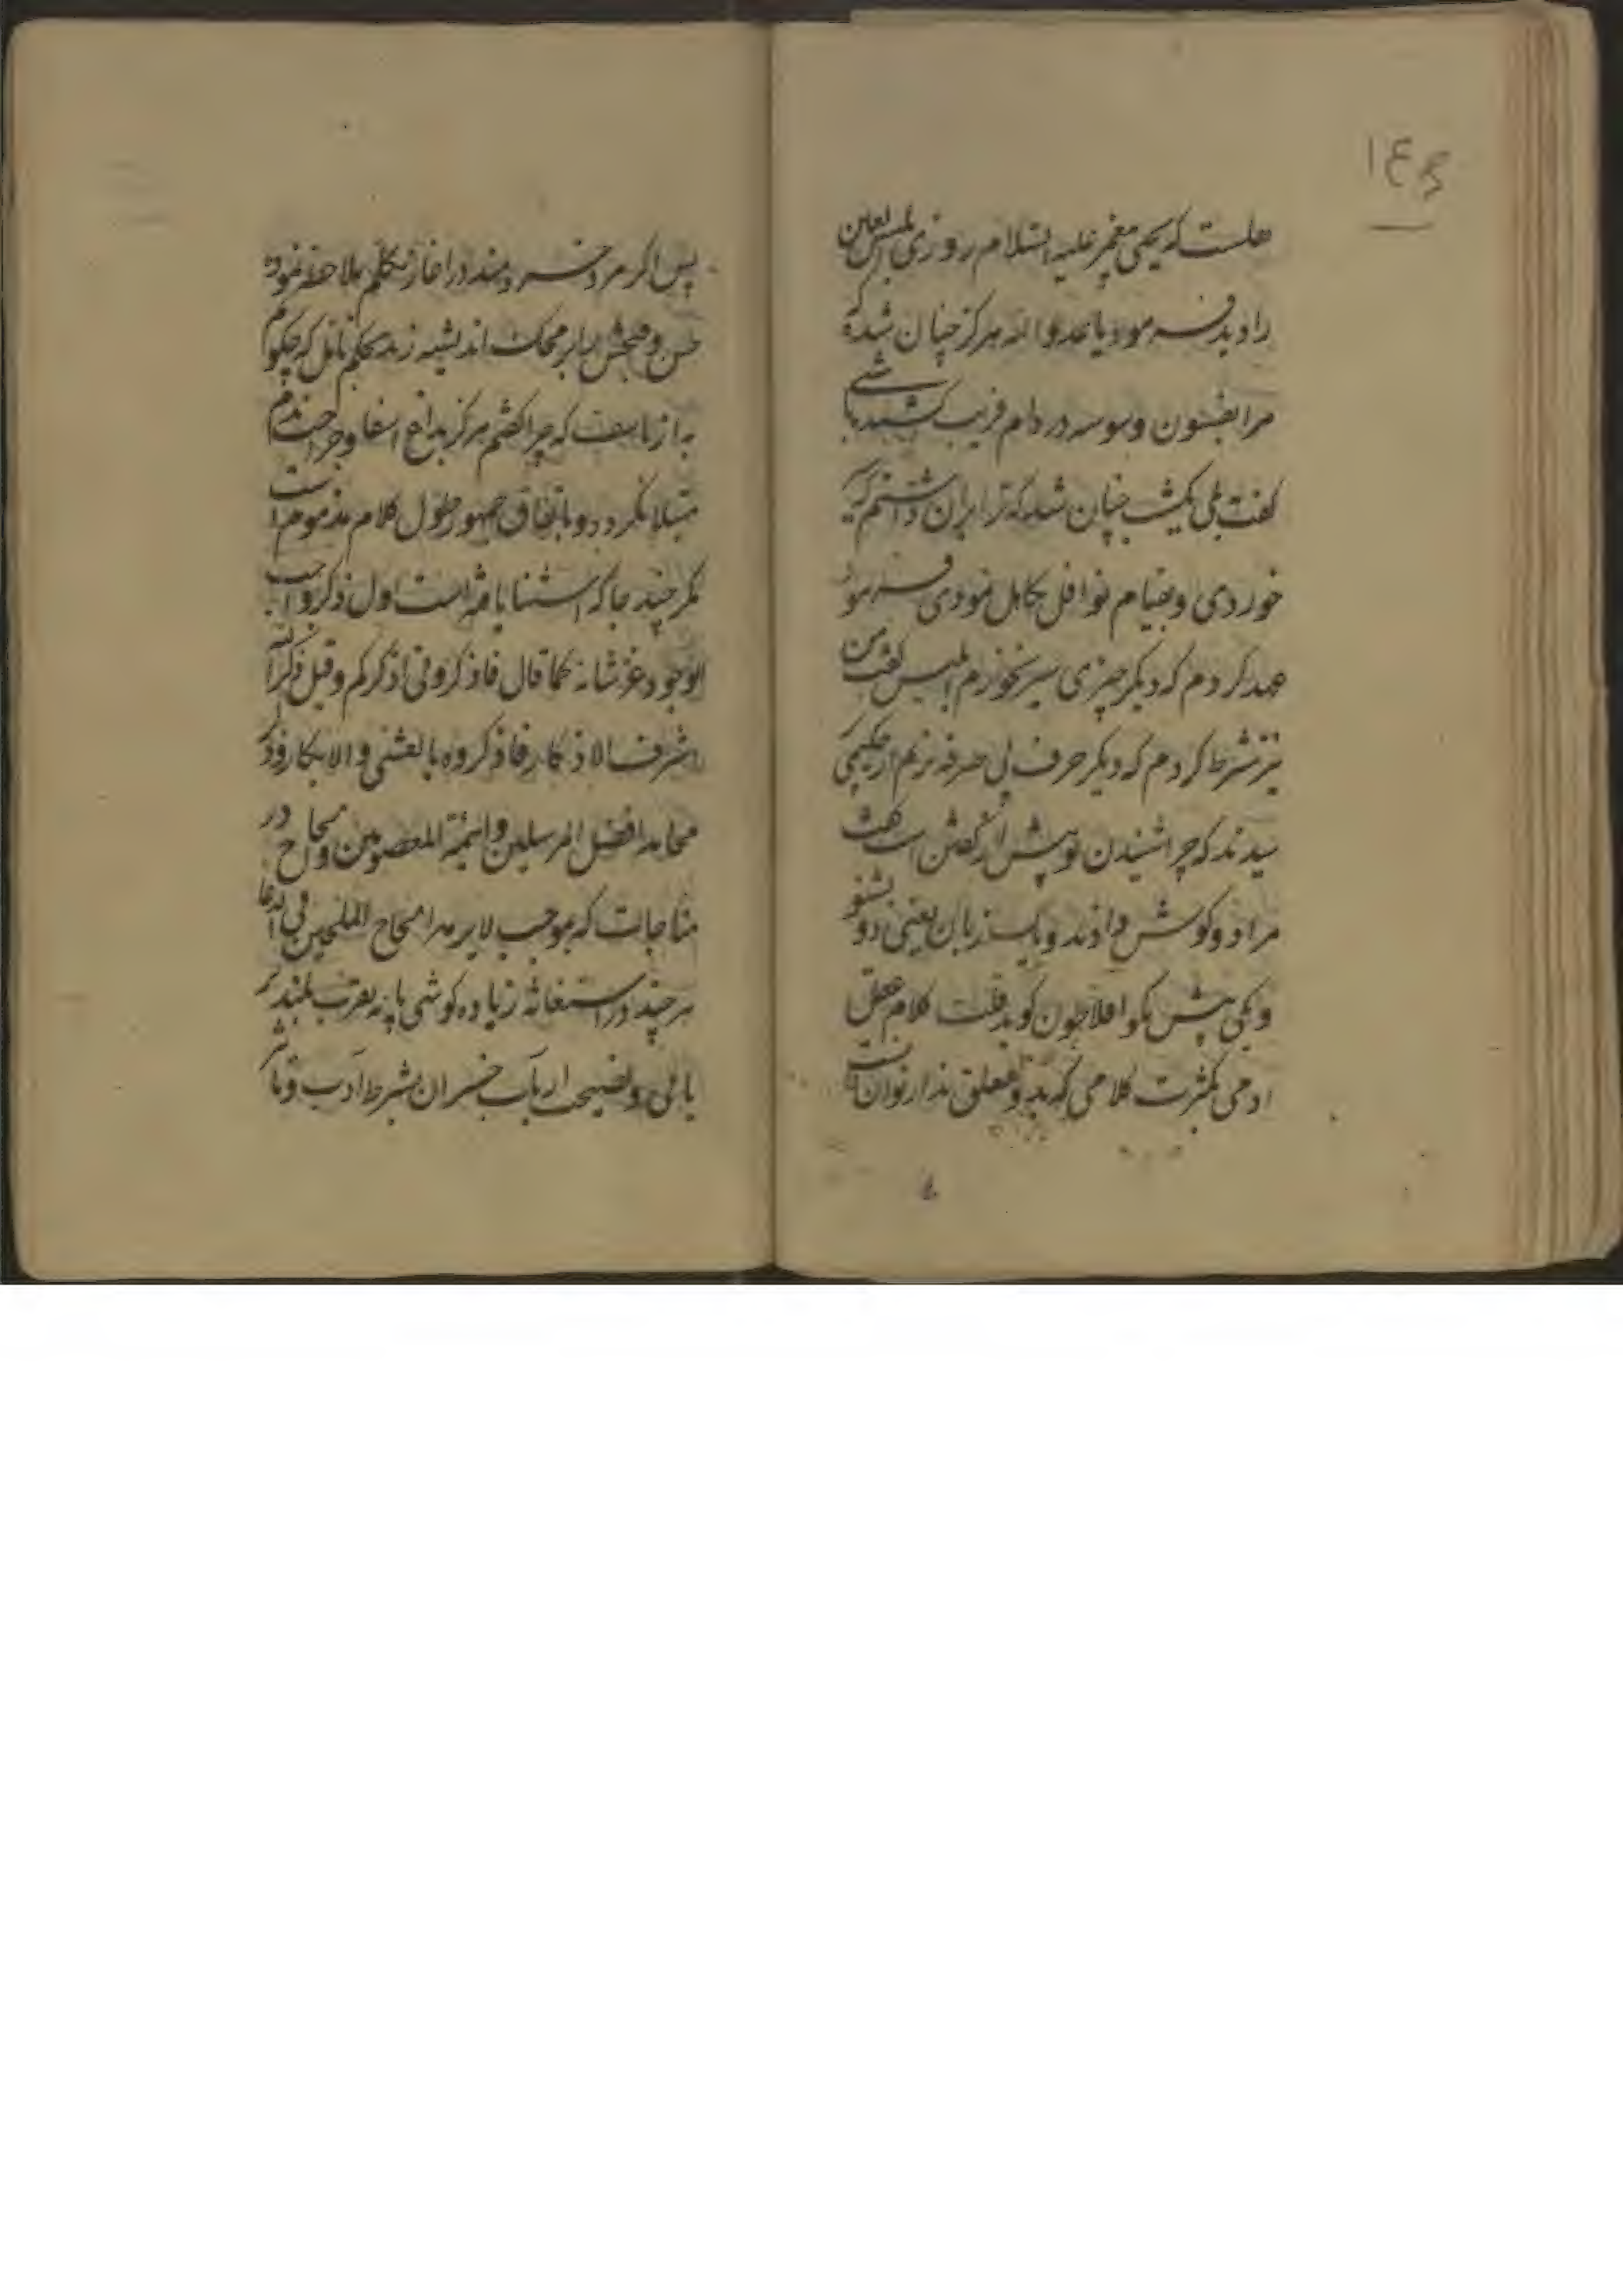 ۱۴۵
هلست که یحیی پیغمبر علیه السلام روزی ابلیس لعین
را دید فرمود یا عدو الله هرگز چنان شد که
مرا بفسون و وسوسه در دام فریب کشیده باشی
گفت بلی یکشب چنان شد که ترا بران داشتم که سیر
خوردی و بقیام نوافل تکاهل نمودی فرمود
عهد کردم که دیگر چیزی سیر نخورم ابلیس گفت من
نیز شرط کردم که دیگر حرف بی صرفه نزنم از حکیمی
پرسیدند که چرا شنیدن تو بیش از گفتن است گفت
مرا دو گوش دادند و یک زبان یعنی دو بشنو
و یکی بیش مگو افلاطون گوید قلت کلام عقل
ادمی بکثرت کلامی که بدو تعلق ندارد توان دانست
پس اگر مرد خردمند در اغاز تکلم ملاحظه نموده
حسن و قبحش را بر محک اندیشه زند بحکم تامل که چگویم
به از تاسف که چرا گفتم هرگز بداغ اسفا و جراحت ندم
مبتلا نگردد و باتفاق جمهور طول کلام مذموم است
مگر چند جا که استثنا یافته است اول ذکر واجب
الوجود عز شانه کما قال فاذکرونی اذکرکم و قیل ذکر الله
اشرف الاذکار فاذکروه بالعشی والابکار و ذکر
محامد افضل المرسلین و ائمة المعصومین و الحاح در
مناجات که بموجب لا یبرمه الحاح الملحین فی الدعا
هر چند در استغاثه زیاده کوشی پایه تقرب بلندتر
یابی و نصیحت ارباب خسران بشرط ادب و تاثیر